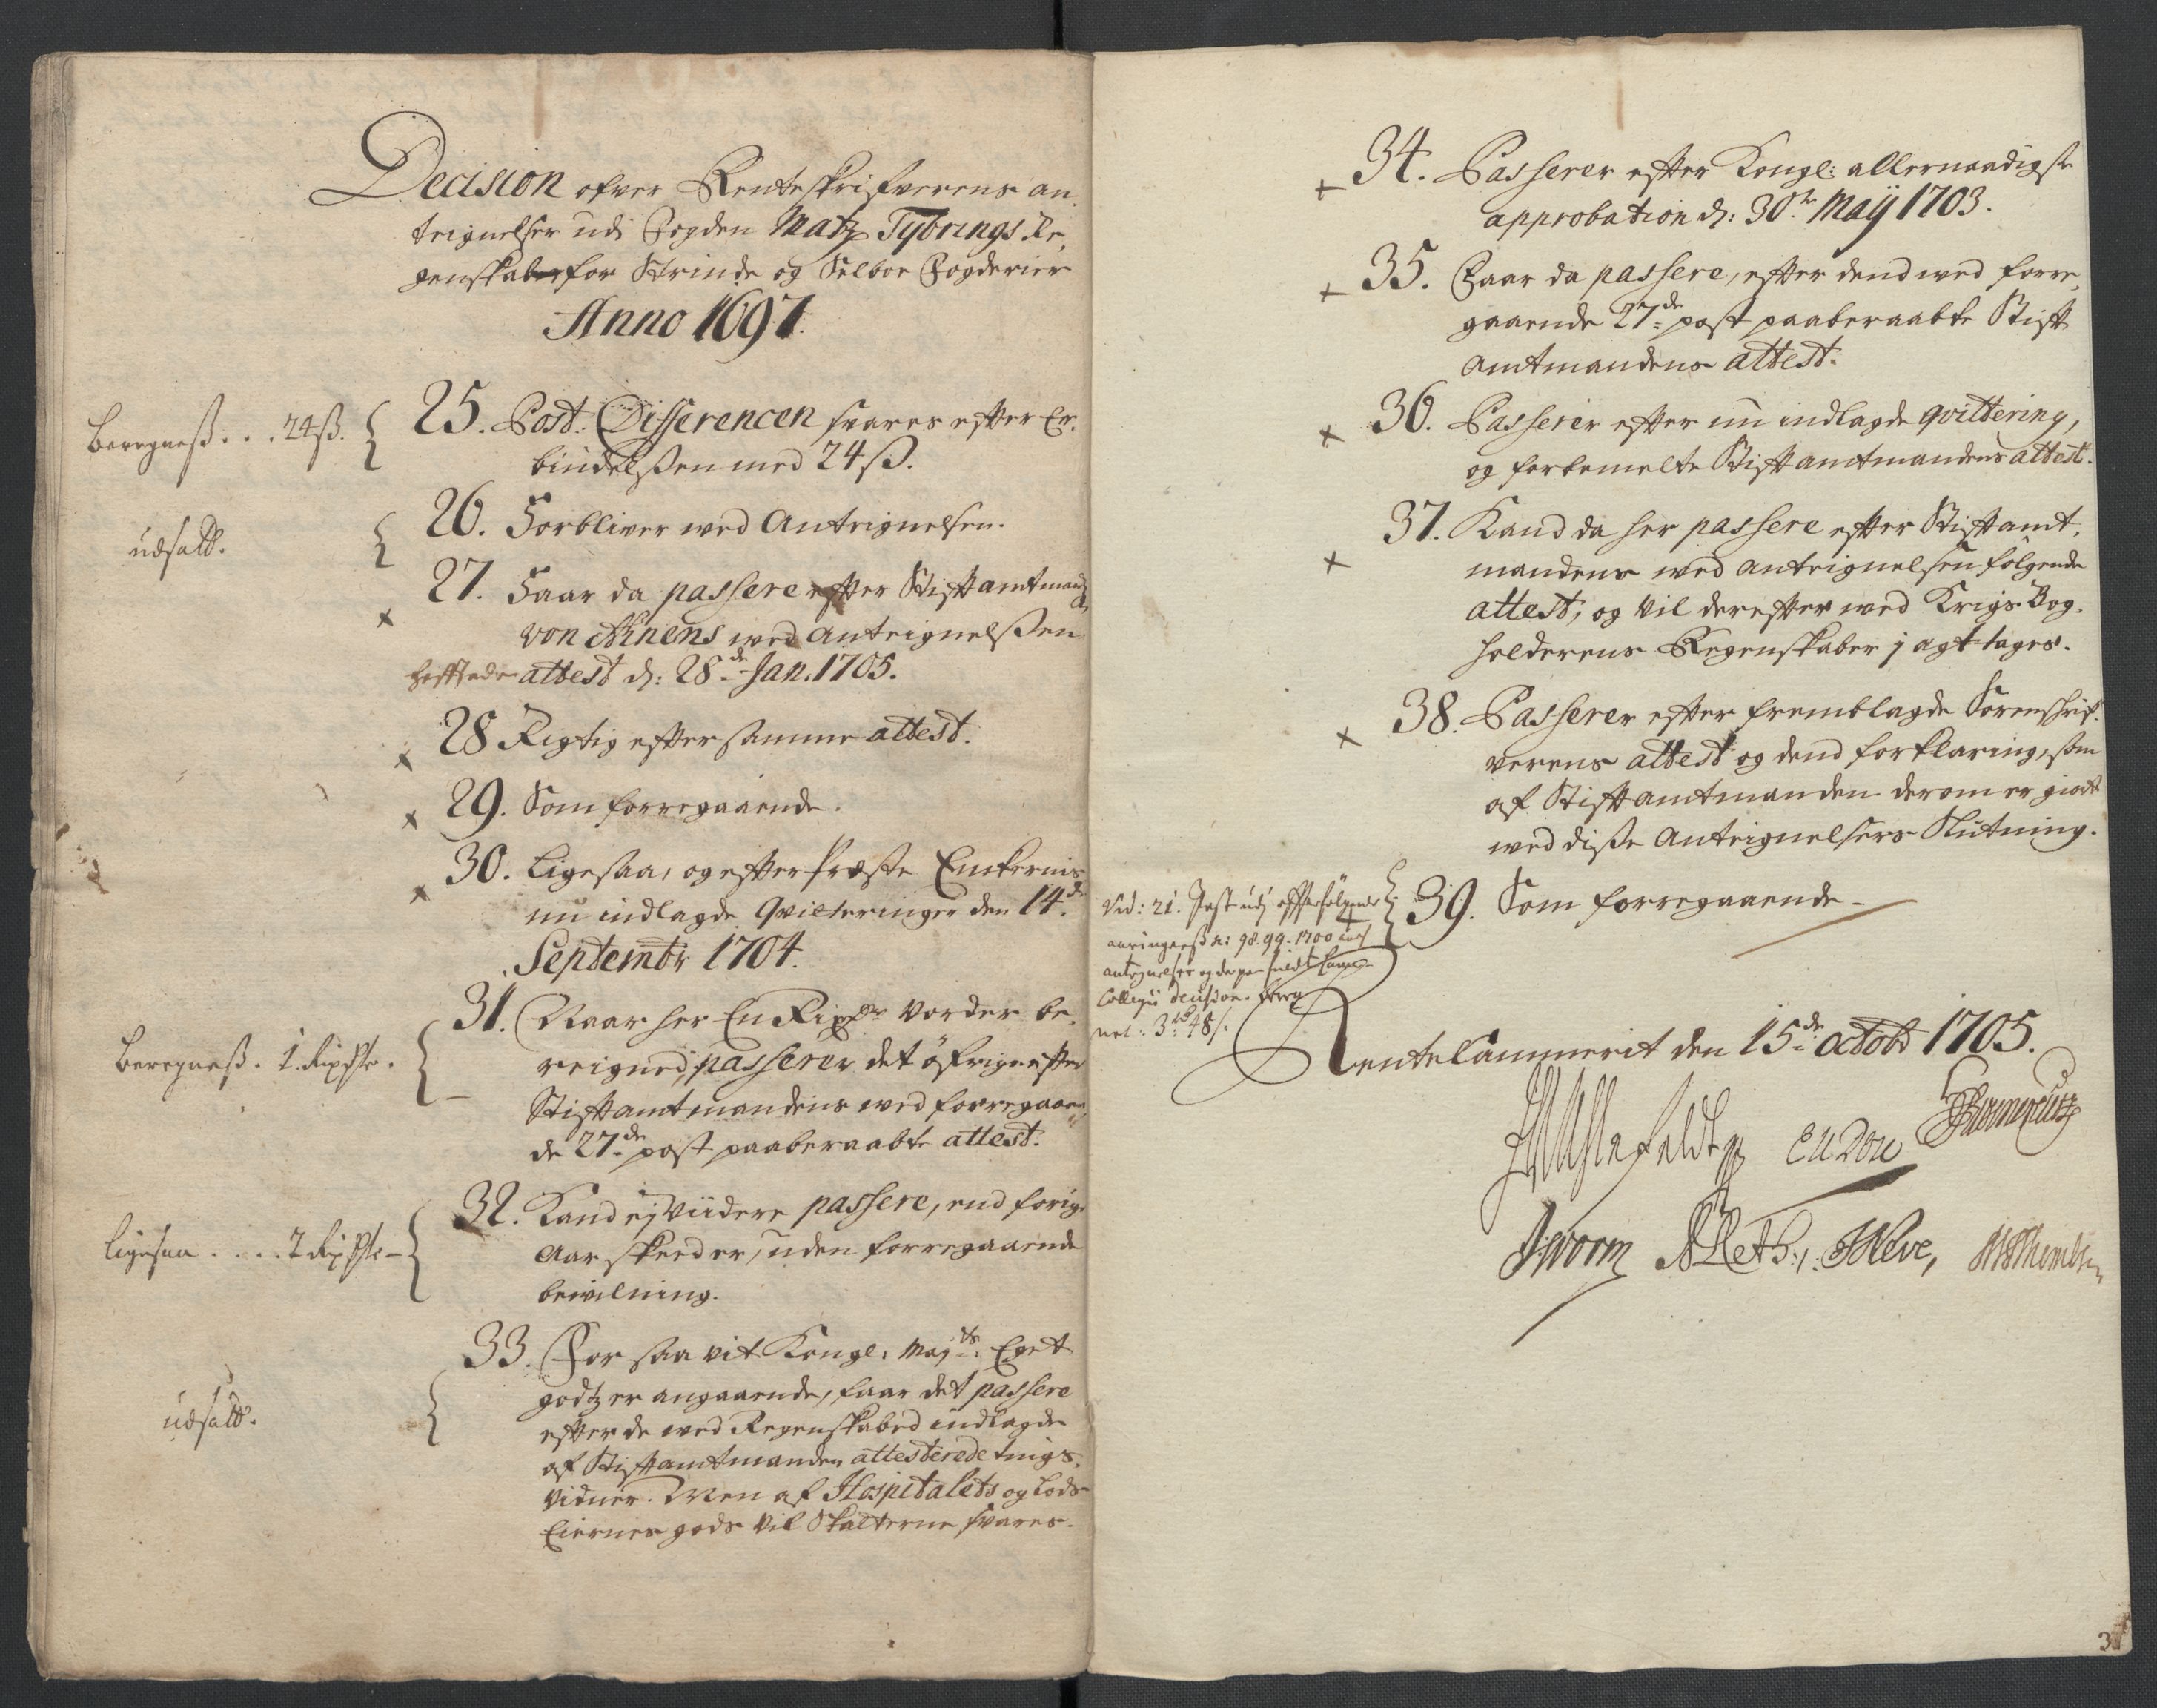 Decision ofver Renteskrifverens an
teignelser udi Fogden Matz Tybrings Re,
genskab for Strinde og Selboe Fogderier
Anno 1697.
Beregneß . . . 24 ß.
25. Post. Differencen svares efter Er,
bindelßen med 24 ß.
udsatt.
26. Forbliver ved Anteignelsen.
27. Faar da passere efter Stiftamtmand
von Ahnens ved Anteignelßen
heftede attest d: 28de Jan. 1705.
28 Rigtig efter samme attest.
29. Som forregaaende.
30. Ligesaa, og efter Præste Enkernis
nu indlagde Qvitteringer den 14de
Septembr 1704.
Beregneß . 1. Rixdlr.
31. Naar her En Rixdr vorder be,
reigned, passerer det öfrige efter
Stiftamtmandens ved forregaaen,
de 27de post paaberaabte attest.
Ligesaa . . . . 2 Rixdlr
32. Kand ej viidere passere, end forige
Aar skeed er, uden forregaaende
bevilning.
udsatt.
33. For saa vit Kongl: Majts: Eget
godtz er angaaende, faar det passere
efter de ved Regenskabed indlagde
af Stiftamtmanden attesterede tings,
vidner. Men af Hospitalets og Lods
Eiernes gods vil Skatterne svares.
34. Passerer efter Kongl: allernaadigste
approbation d: 30te Maÿ 1703.
35. Faar da passere, efter dend ved forre,
gaaende 27de post paaberaabte Stift
Amtmandens attest.
36. Passerer efter nu indlagde qvittering,
og forbemelte Stiftamtmandens attest.
37. Kand da her passere efter Stiftamt,
mandens ved anteignelsen fölgende
attest, og vil derefter ved Krigs Bog,
holderens Regenskaber i agt tages.
38. Passerer efter fremblagde Sorenskrif,
verens attest og dend forklaring, som
af Stiftamtmanden derom er giort
ved disse Anteignelsers Slutning.
39. Som forregaaende
Vid: 21. Post udj efterfölgende
aaringers 98. 99. 1700
antegnelser og derpaa
Collegii decision.
net: 3 rd 48 ß.
RenteCammerit den 15de octobr 1705.
Worm